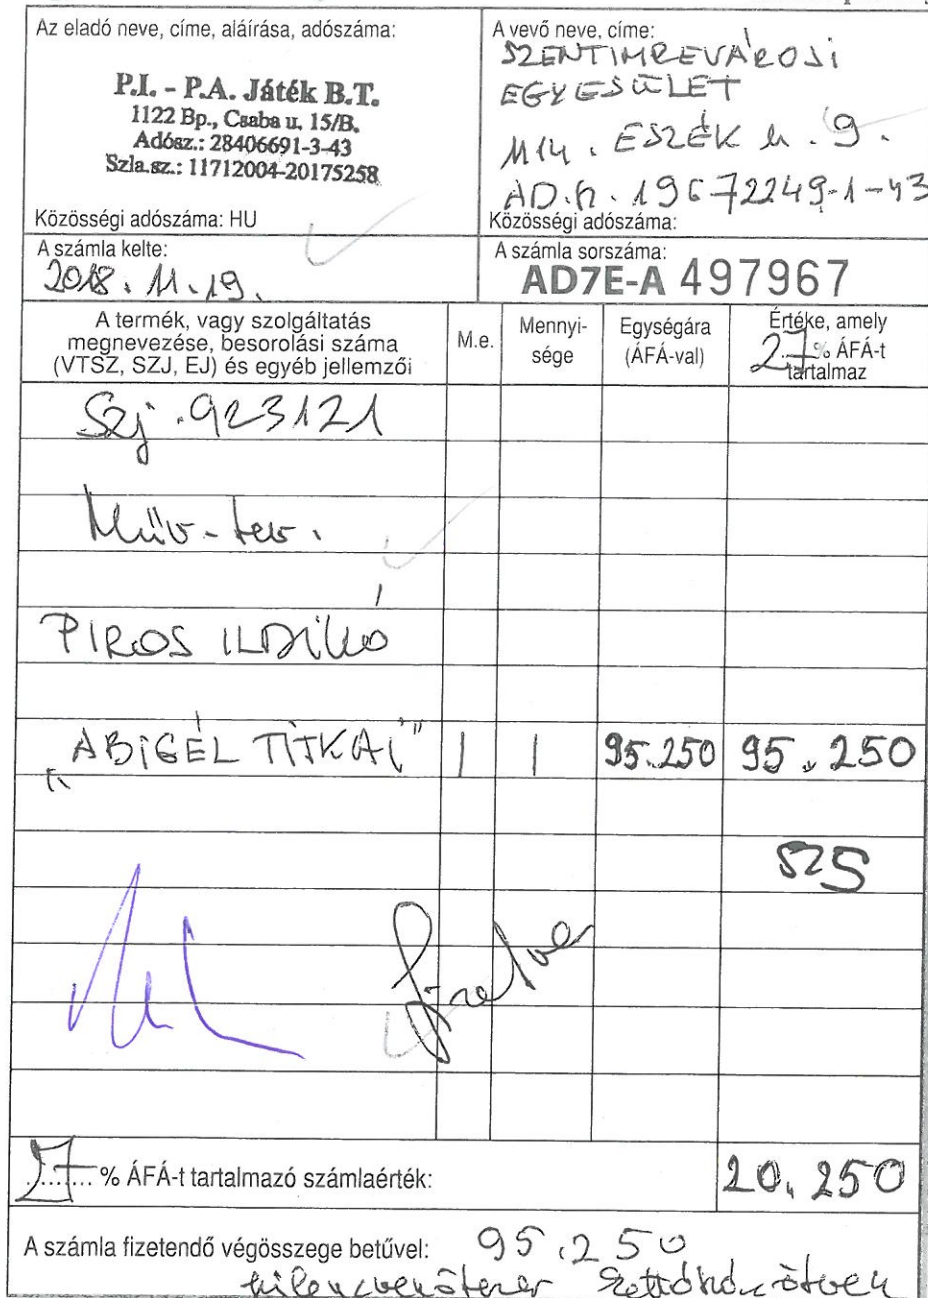 Az eladó neve, címe, aláírása, adószáma:
P.I. - P.A. Játék B.T.
1122 Bp., Csaba u. 15/B.
Adósz.: 28406691-3-43
Szla.sz.: 11712004-20175258
Közösségi adószáma: HU
A vevő neve, címe:
SZENTIMREVÁROSI
EGYESÜLET
1114. ESZÉK u. 9.
19672249-1-43
Közösségi adószáma:
A számla kelte:
2018. 11. 19.
A számla sorszáma:
AD7E-A 497967
A termék, vagy szolgáltatás
megnevezése, besorolási száma
(VTSZ, SZJ, EJ) és egyéb jellemzői
M.e.
Mennyi-
sége
Egységára
(ÁFÁ-val)
Értéke, amely
27% ÁFÁ-t
tartalmaz
Szj. 923121
Műv-tev.
PIROS ILDIKÓ
„ABIGÉL TITKAI" 1 1 95.250 95.250
27 % ÁFÁ-t tartalmazó számlaérték: 20.250
A számla fizetendő végösszege betűvel: 95.250
kilencvenötezer kettőszázötven